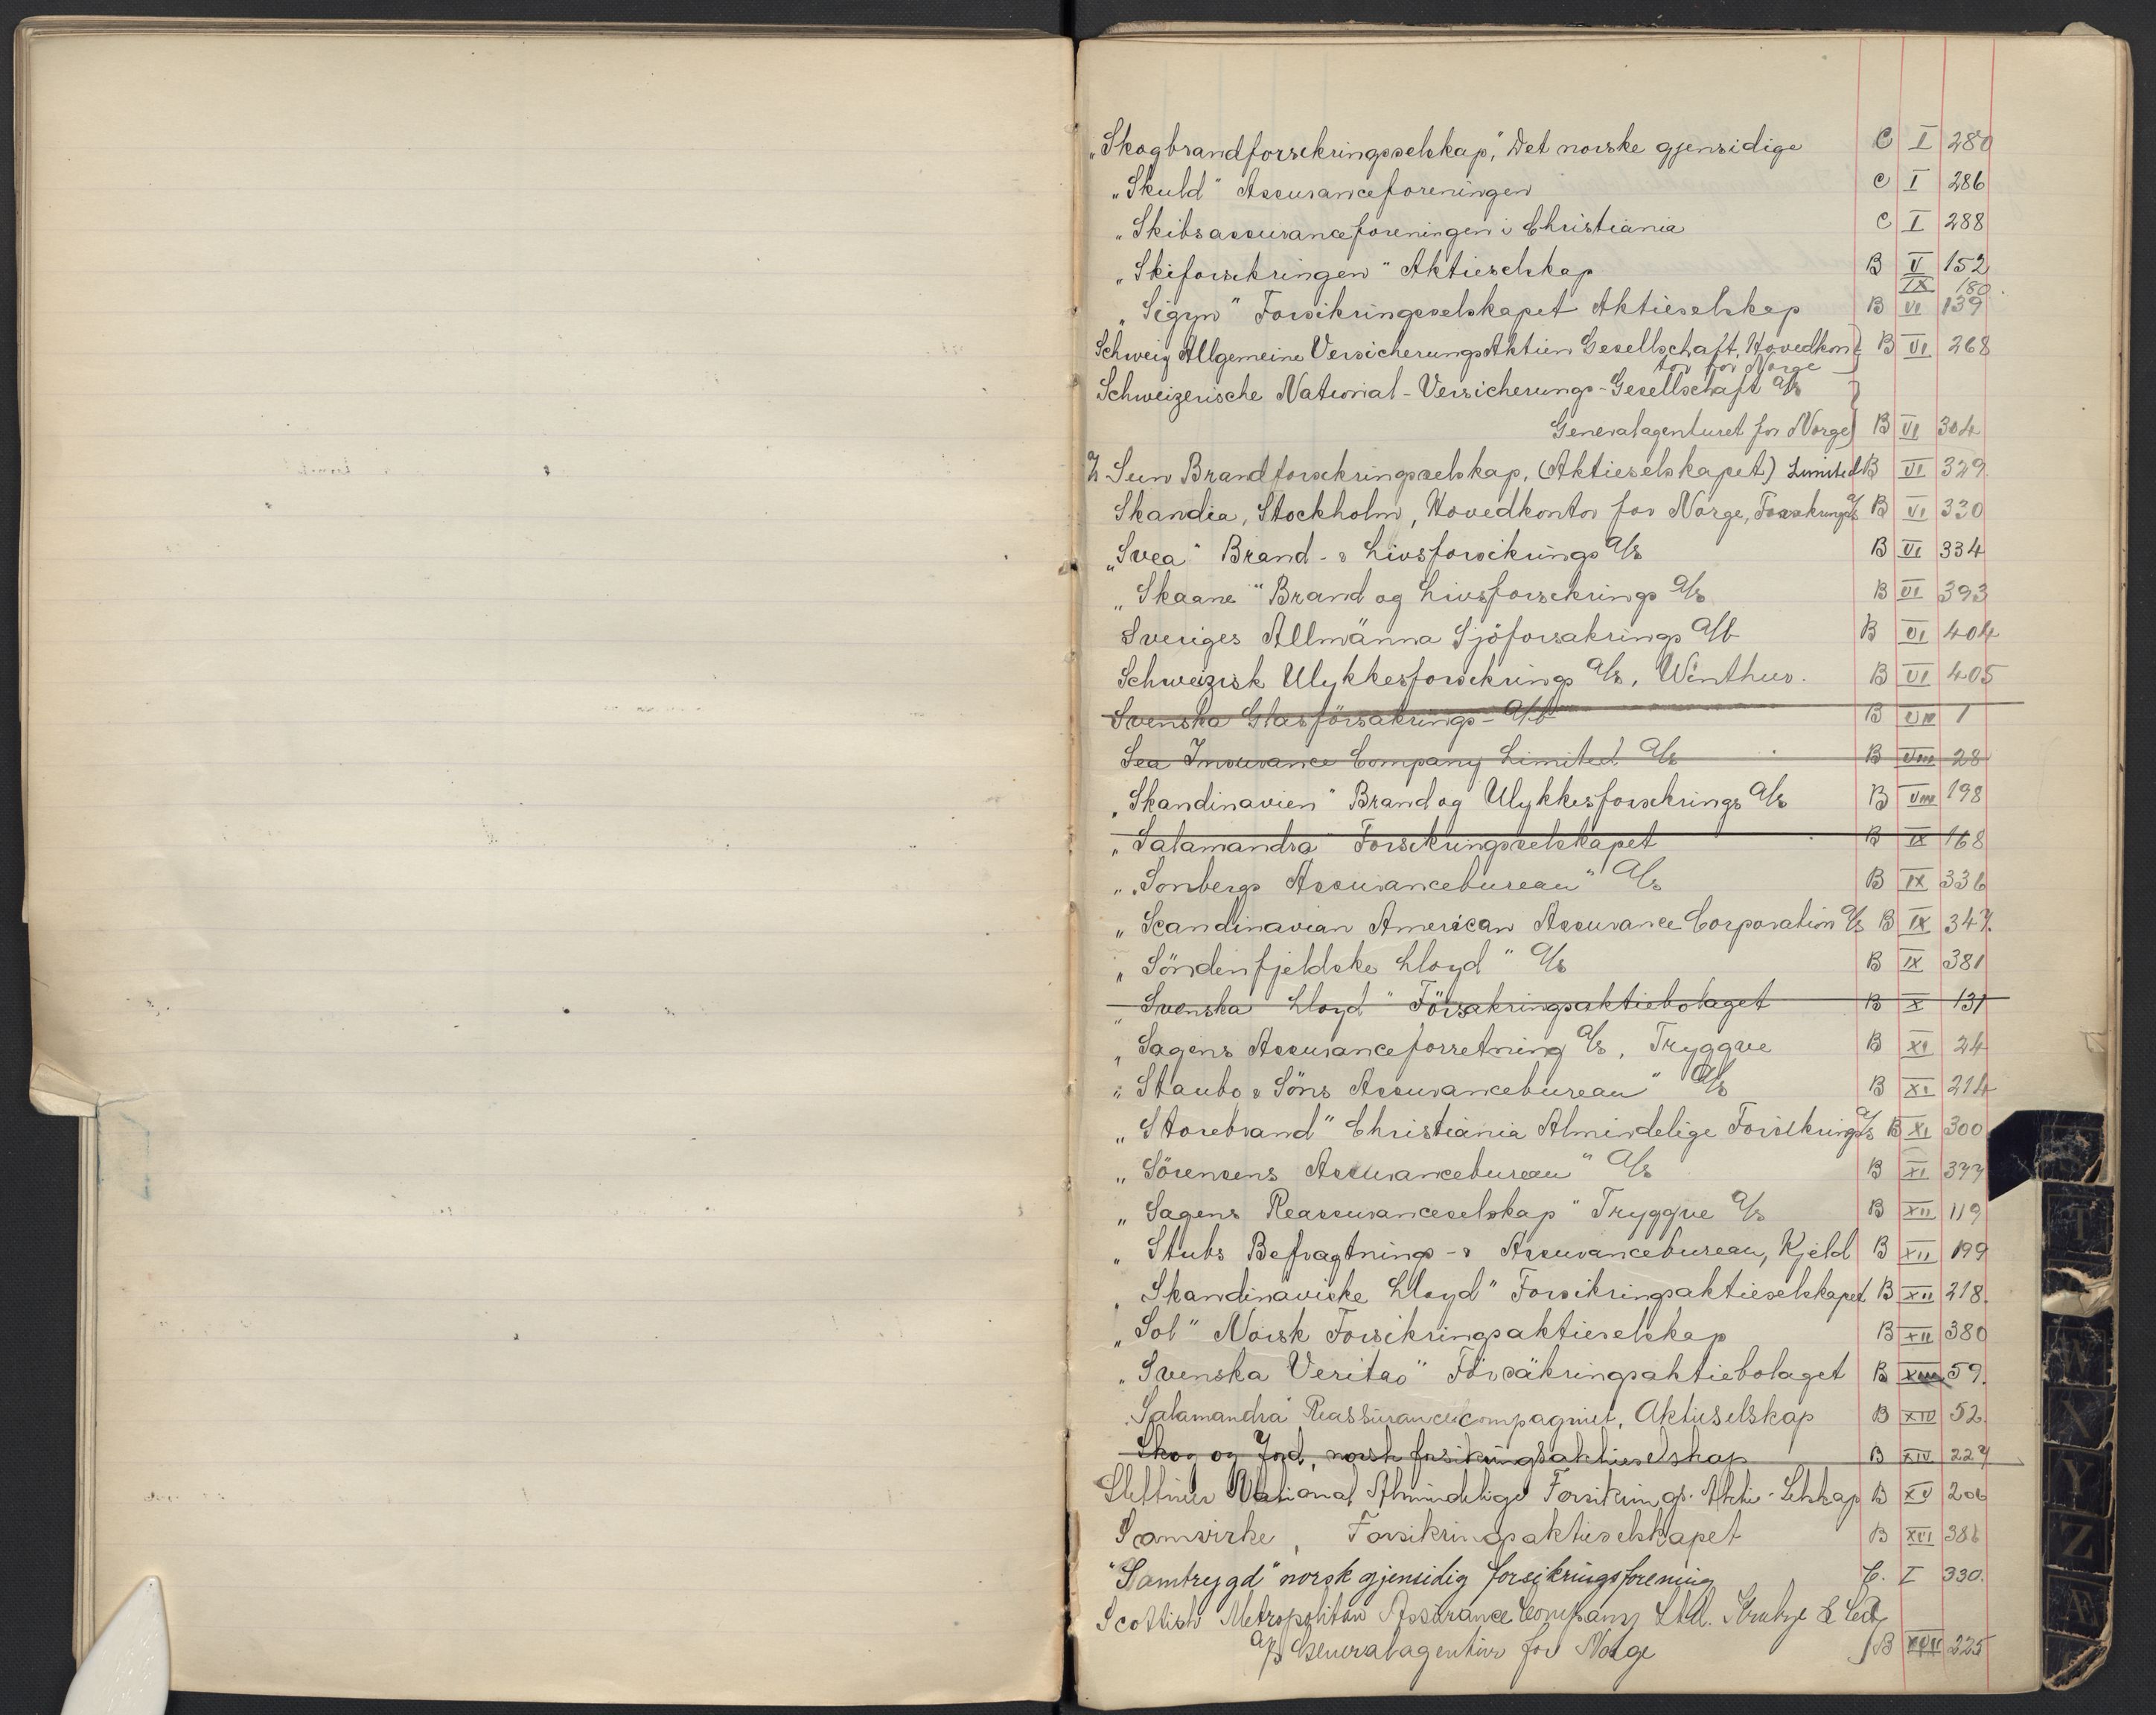 „Skogbrandforsekringsselskap," Det norske gjensidige C I 280
„Skuld" Assuranceforeningen C I 286
„Skibsassuranceforeningen i Christiania C I 288
„Skiforsekringen" Aktieselskap B V 152
IX 180.
„Sigyn" Forsikringsselskapet Aktieselskap B VI 139
Schweiz Allgemeine Versicherungs Aktien Gesellschaft, Hovedkon- B VI 268
tor for Norge
Schweizerische National-Versicherungs-Gesellschaft A/s
Generalagenturet for Norge B VI 304
Sun Brandforsekringsselskap, (Aktieselskapet) Limited B VI 329.
Skandia, Stockholm, Hovedkontor for Norge, Forsekrings A/s B VI 330
„Svea" Brand- & Livsforsikrings A/s B VI 334
„Skaane" Brand og Livsforsekrings A/s B VI 393
Sveriges Allmänna Sjöforsakrings A/b B VI 404
Schweizisk Ulykkesforsekrings A/s, Winthur. B VI 405
Svenska Glasförsäkrings- A/b B VIII 1
Sea Insurance Company Limited A/s B VIII 28
„Skandinavien" Brand og Ulykkesforsekrings A/s B VIII 198
„Salamandra" Forsekringsselskapet B IX 168
„Sonbergs Assurancebureau" A/s B IX 336
„Scandinavian American Assurance Corporation A/s B IX 347.
„Söndenfjeldske Lloyd" A/s B IX 381
„Svenska Lloyd" Försäkringsaktiebolaget B X 131
„Sagens Assuranceforretning A/s, Tryggve B XI 24
„Staubo & Söns Assurancebureau" A/s B XI 214
„Storebrand" Christiania Almindelige Forsikrings A/s B XI 300
„Sörensens Assurancebureau" A/s B XI 377
„Sagens Reassuranceselskap" Tryggve A/s B XII 119
„Stubs Befragtnings- & Assurancebureau, Kjeld B XII 199
„Skandinaviske Lloyd" Forsikringsaktieselskapet B XII 218.
„Sol" Norsk Forsikringsaktieselskap B XII 380
„Svenska Veritas" Försäkringsaktiebolaget B XIII 59.
„Salamandra" Reassurancecompagniet, Aktieselskap B XIV 52.
Skog og Jord, norsk forsikringsaktieselskap B XIV 227
Stettiner National Almindelige Forsikrings-Aktie-Selskap B XV 206
Samvirke, Forsikringsaktieselskapet B XVI 386
"Samtrygd" norsk gjensidig forsikringsforening C. I 330.
Scottish Metropolitan Assurance Company Ltd.
A/s Generalagentur for Norge B XVII 225
T
W
X
Y
Z
Æ